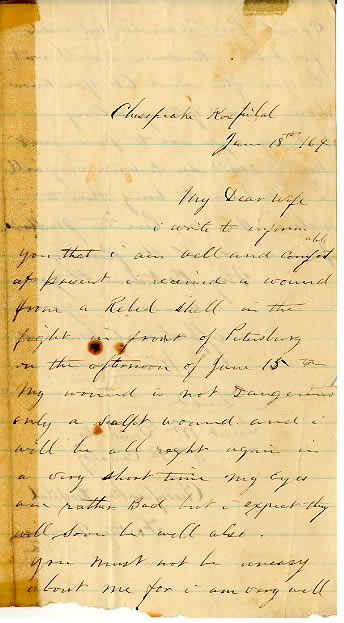 Chesepeake Hospital
June 18th 164
My Dear wife
i write to inform
you that i am well and comfortable
at present i received a wound
from a Rebel shell in the
fight in front of Petersburg
on the afternoon of June 15th
My wound is not Dangerous
only a scalp wound and i
will be all right again in
a very short time My Eyes
are rather Bad but i expect they
will soon be well also.
you must not be uneasy
about me for i am very well